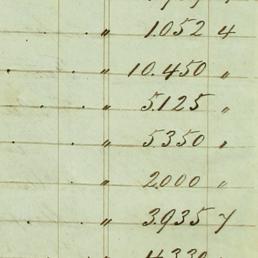 " 1.052 4
" 10.450 "
" 5.125 "
" 5.350 "
" 2000 "
" 3.935 7